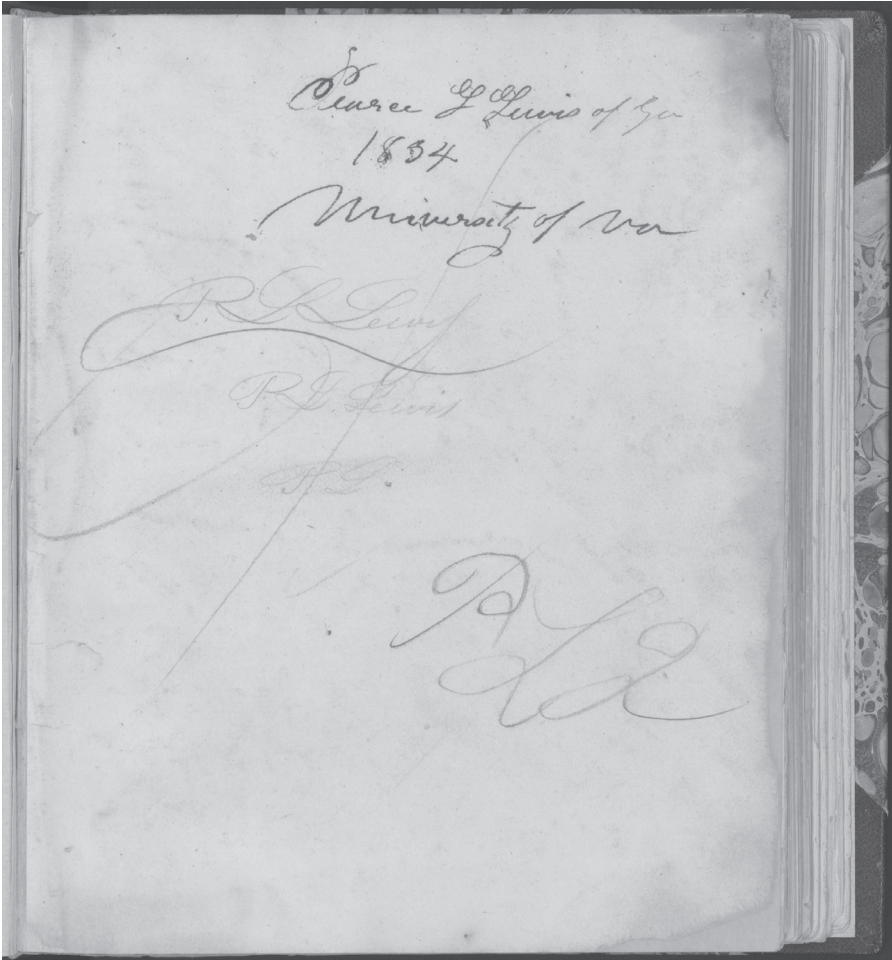 Pearce G Lewis of Ga
1834
University of Va
P. G Lewis
P. G. Lewis
P. G.